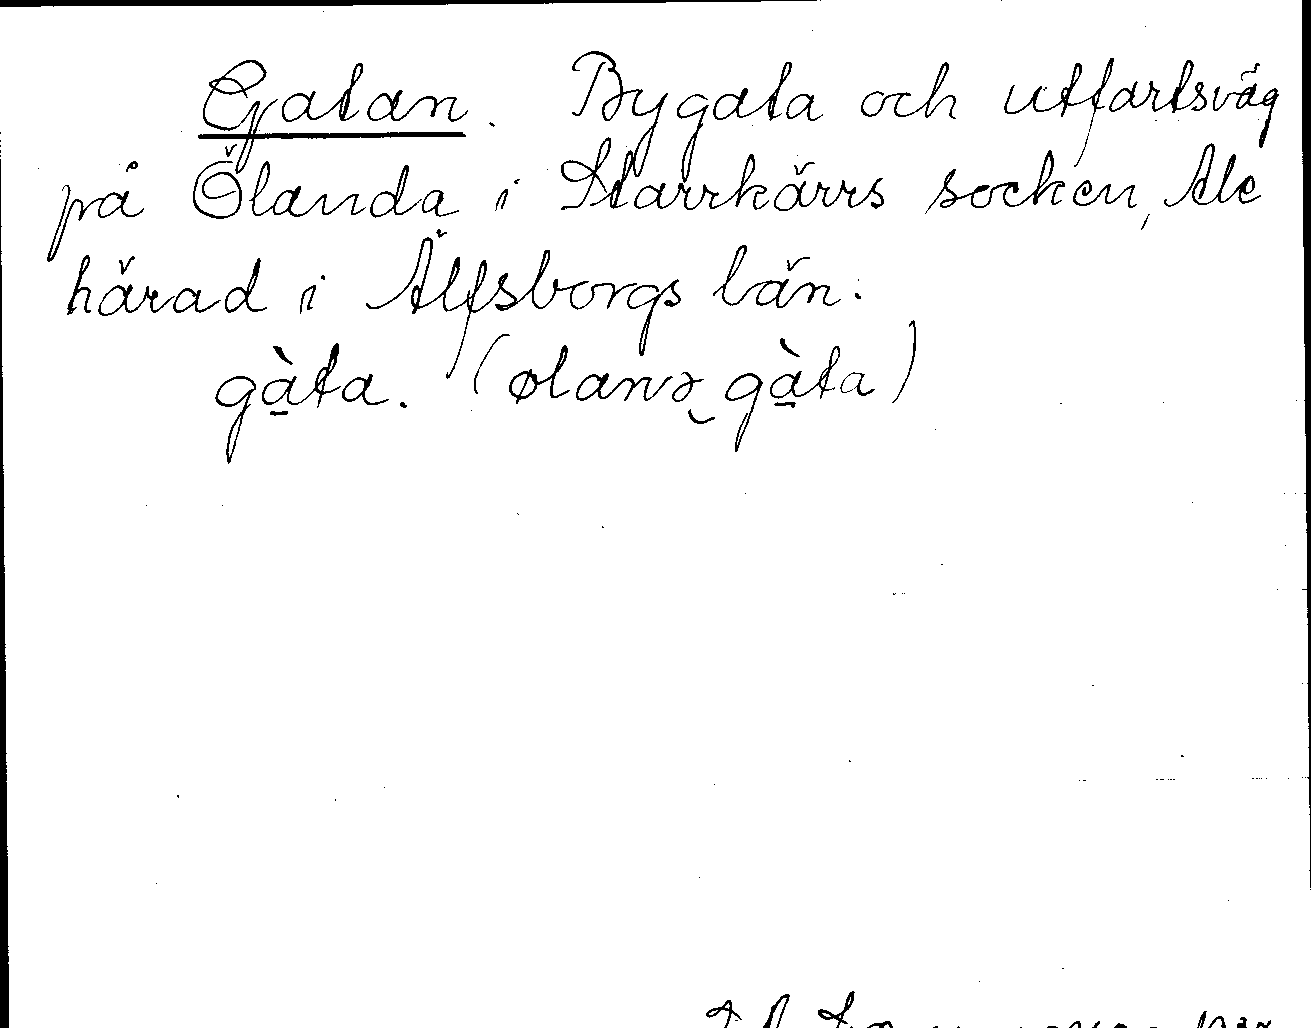 Gatan. Bygata och utfartsväg
på Ölanda i Starrkärrs socken, Ale
härad i Älfsborgs län.
gàta. (ølanə gàta)